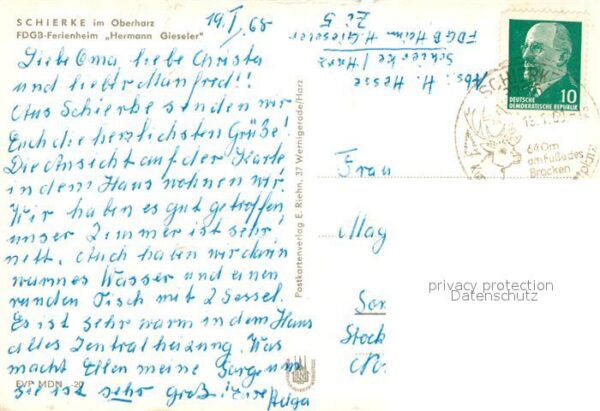 SCHIERKE im Oberharz
FDGB-Ferienheim „Hermann Gieseler"
19.I.65
Liebe Oma, liebe Christa
und lieber Manfred!!
Aus Schierke senden wir
Euch die herzlichsten Grüße!
Die Ansicht auf der Karte
in dem Haus wohnen wir.
Wir haben es gut getroffen,
unser Zimmer ist sehr
nett. Auch haben wir darin
warmes Wasser und einen
runden Tisch mit 2 Sessel.
Es ist sehr warm in dem Haus
alles Zentralheizung. Was
macht Ellen meine Sorge um
sie ist sehr groß! Eure Helga
EVP MDN -.20
Postkartenverlag E. Riehn, 37 Wernigerode/Harz
Abs: H. Hesse
Schierke / Harz
FDGB Heim H. Gieseler
Zi 5
DEUTSCHE
DEMOKRATISCHE REPUBLIK
10
SCHIERKE
640m
am Fuße des
Brocken
Frau
May
Stock
privacy protection
Datenschutz